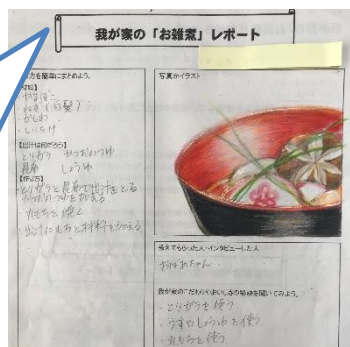 我が家の「お雑煮」レポート
方を簡単にまとめよう。
【材料】
かまぼこ
ねぎ(白髪)
しいたけ
【出汁は何だろう】
とりがら かつおのつゆ
昆布 しょうゆ
【作り方】
・とりがらと昆布で出汁をとる
かつおのつゆを加える
・丸もちを焼く
・出汁にもちと材料を加える
写真かイラスト
教えてもらった人・インタビューした人
おばあちゃん
我が家のこだわりやおいしさの秘訣を聞いてみよう。
・とりがらを使う
・うすいしょうゆを使う
・丸もちを使う